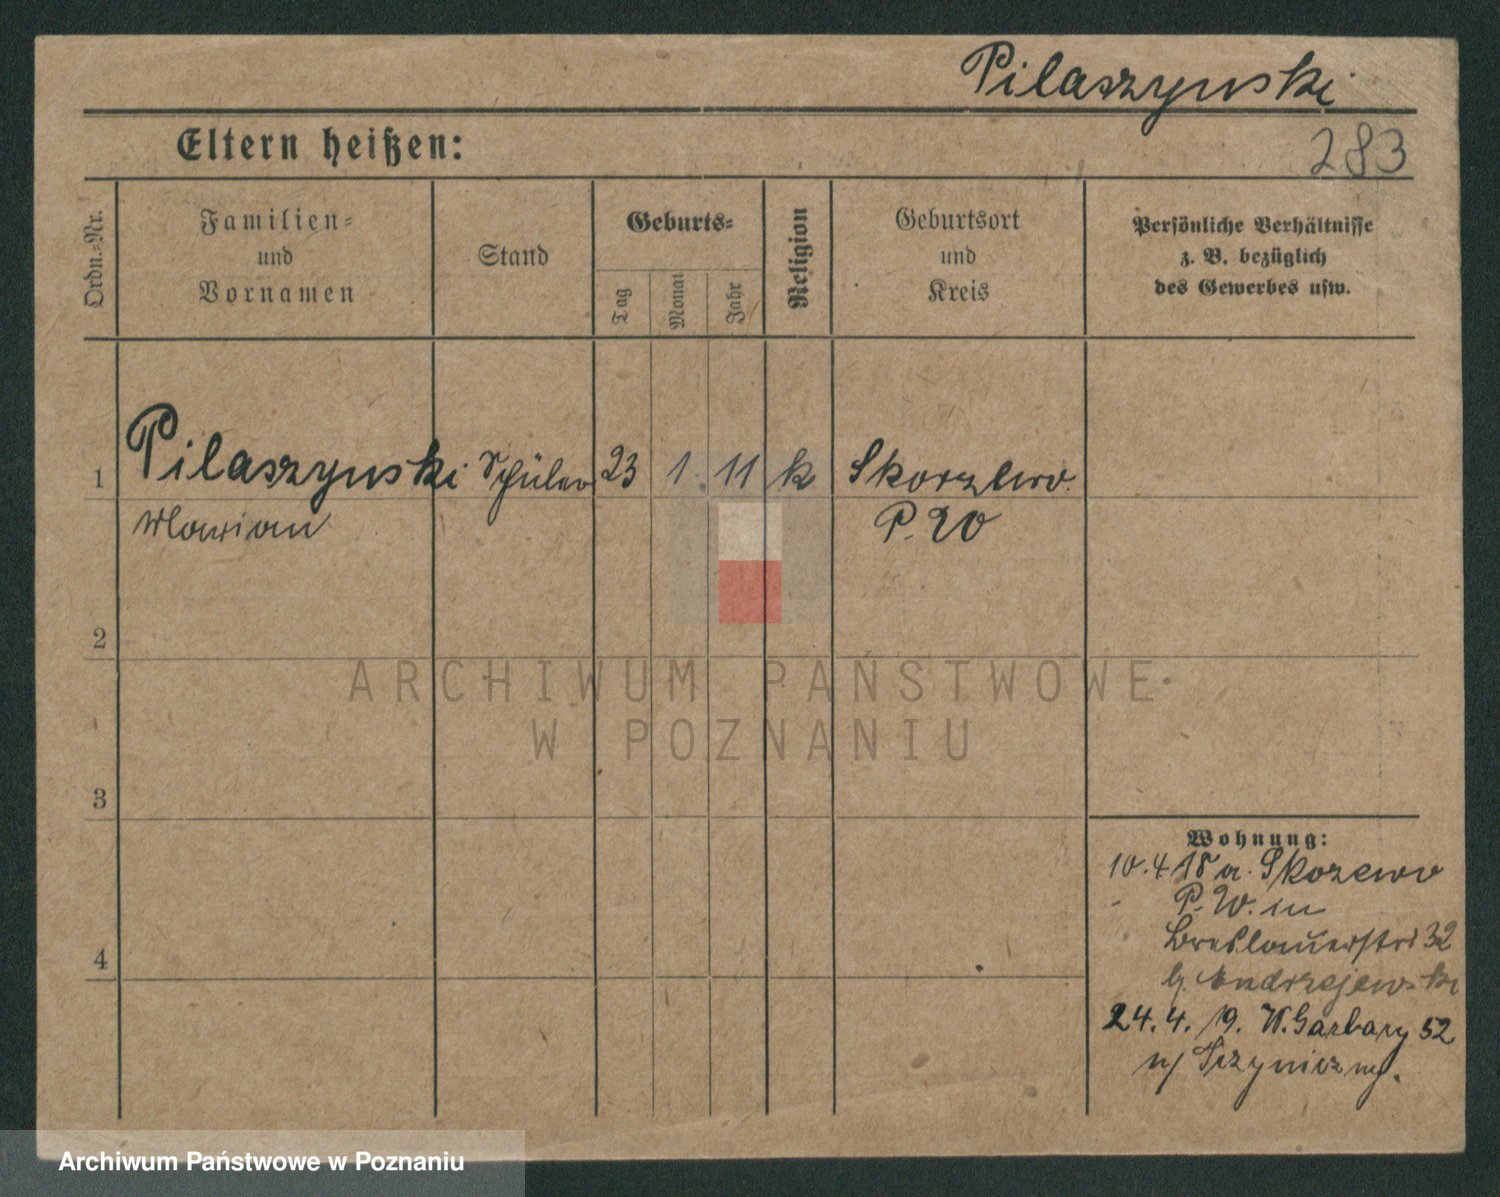 Pilaszynski
Eltern heißen:
283
Ordn.-Nr.
Familien-
und
Vornamen
Stand
Geburts-
Tag
Monat
Jahr
Religion
Geburtsort
und
Kreis
Persönliche Verhältnisse
z. B. bezüglich
des Gewerbes usw.
1 Pilaszynski Schüler 23 1. 11 k Skorzewo
Marian P. W
2
3
4
Wohnung:
10.4 18 a. Skozewo
P. W. in
Breslauerstr 32
b. Andrzejewski
24.4. 19. W. Garbary 52
ARCHIWUM PAŃSTWOWE
W POZNANIU
Archiwum Państwowe w Poznaniu